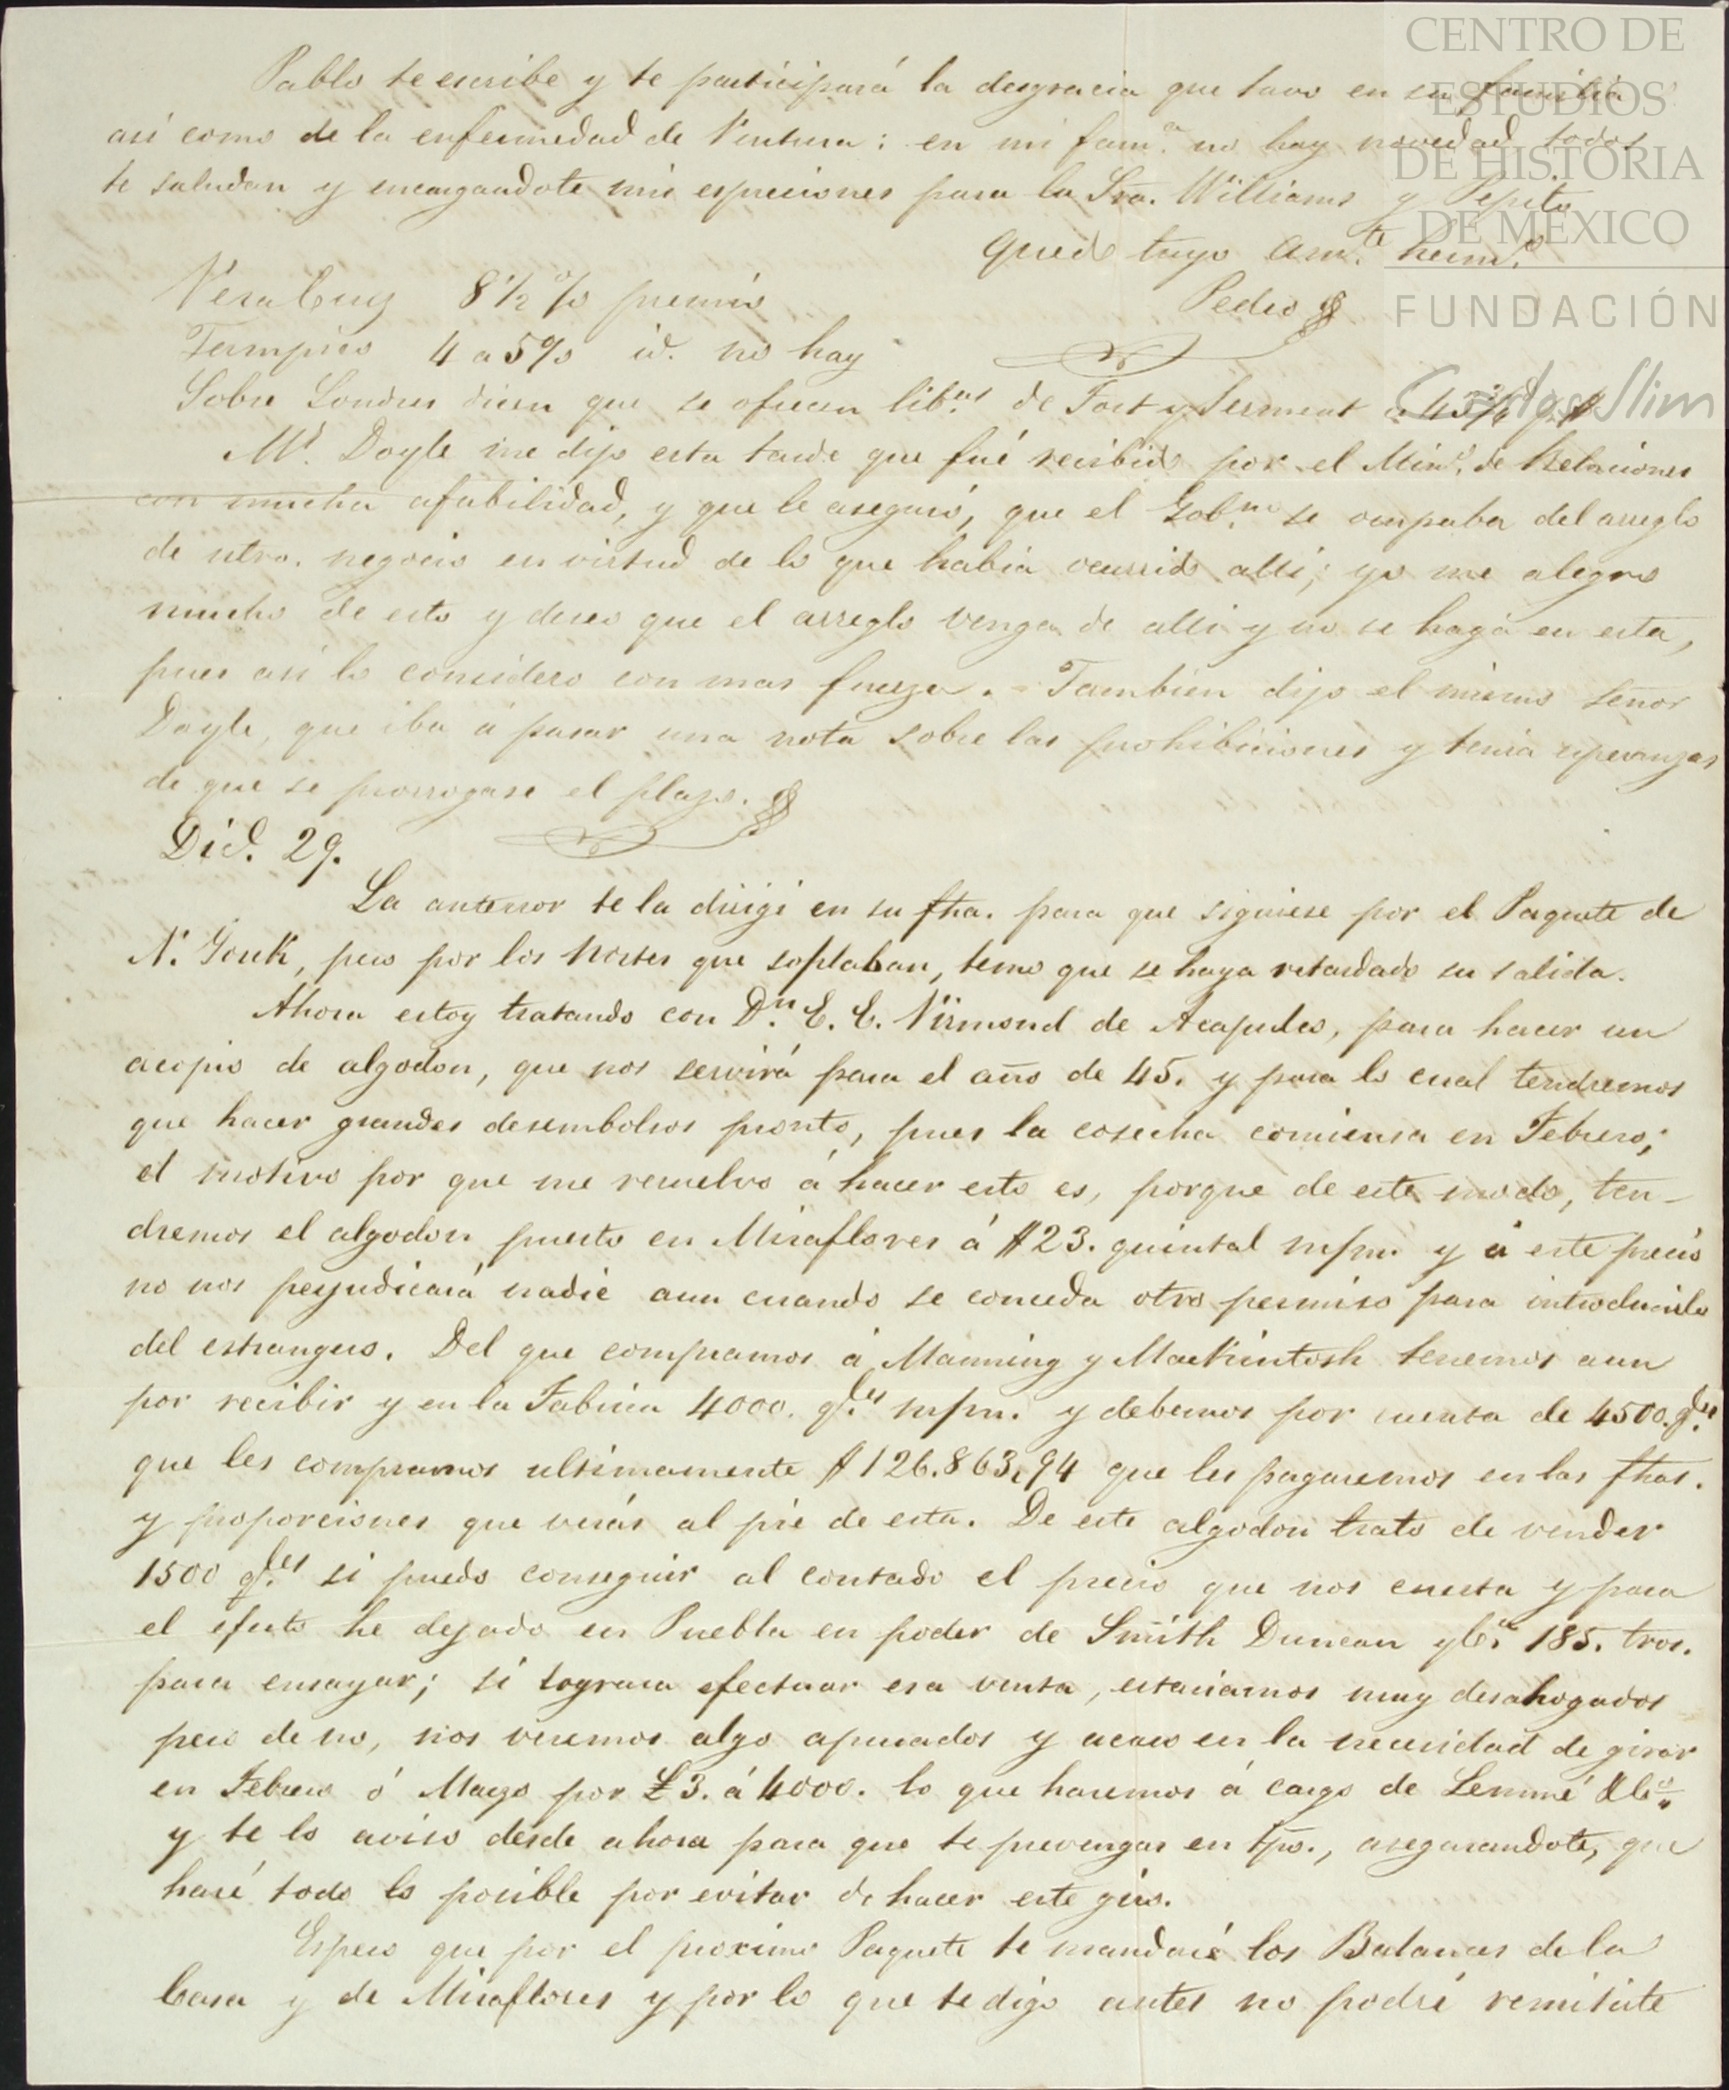 CENTRO DE
ESTUDIOS
DE HISTORIA
DE MÉXICO
FUNDACIÓN
Carlos Slim
Pablo te escribe y te participará la desgracia que tuvo en su familia
asi como de la enfermedad de Ventura: en mi fam.ª no hay novedad todos
te saludan y encargandote mis espreciones para la Sra. Williams y Pepita
quedo tuyo am.te herm.o
Pedro
Vera Cruz 8 1/2 % premio
Tampico 4 a 5% id. no hay
Sobre Londres dicen que se ofrecen lib.as de Fort y Serment a 43 3/4 p $
Mr. Doyle me dijo esta tarde que fué recibido por el Min.o de Relaciones
con mucha afabilidad, y que le aseguró, que el Gob.no se ocupaba del arreglo
de ntro. negocio en virtud de lo que habia ocurrido alli; yo me alegro
mucho de esto y deseo que el arreglo venga de alli y no se haga en esta,
pues asi lo considero con mas fuerza. - Tambien dijo el mismo Señor
Doyle, que iba á pasar una nota sobre las prohibiciones y tenia esperanzas
de que se prorrogase el plazo.
Dic.e 29.
La anterior te la dirigi en su fha. para que siguiese por el Paquete de
N. York, pero por los Nortes que soplaban, temo que se haya retardado su salida.
Ahora estoy tratando con D.n E. E. Virmond de Acapulco, para hacer un
acopio de algodon, que nos servirá para el año de 45. y para lo cual tendremos
que hacer grandes desembolsos pronto, pues la cosecha comiensa en Febrero;
el motivo por que me resuelvo á hacer esto es, porque de este modo, ten-
dremos el algodon puesto en Miraflores á $23. quintal m/m. y á este precio
no nos perjudicará nadie aun cuando se conceda otro permiso para introducirlo
del estrangero. Del que compramos á Manning y Mackintosh tenemos aun
por recibir y en la Fabrica 4000. q.les m/m. y debemos por cuenta de 4500. q.les
que les compramos ultimamente $126.863,94 que les pagaremos en las fhas.
y proporciones que verás al pie de esta. De este algodon trato de vender
1500 q.les si puedo conseguir al contado el precio que nos cuesta y para
el efecto he dejado en Puebla en poder de Smith Duncan y C.a 185. tros.
para ensayar; si lograra efectuar esa venta, estariamos muy desahogados
pero de no, nos veremos algo apurados y acaso en la necesidad de girar
en Febrero ó Marzo por £3. á 4000. lo que haremos á cargo de Lemmé & C.o
y te lo aviso desde ahora para que te prevengas en tpo., asegurandote, que
haré todo lo posible por evitar de hacer este giro.
Espero que por el proximo Paquete te mandaré los Balances de la
Casa y de Miraflores y por lo que te digo antes no podré remitirte